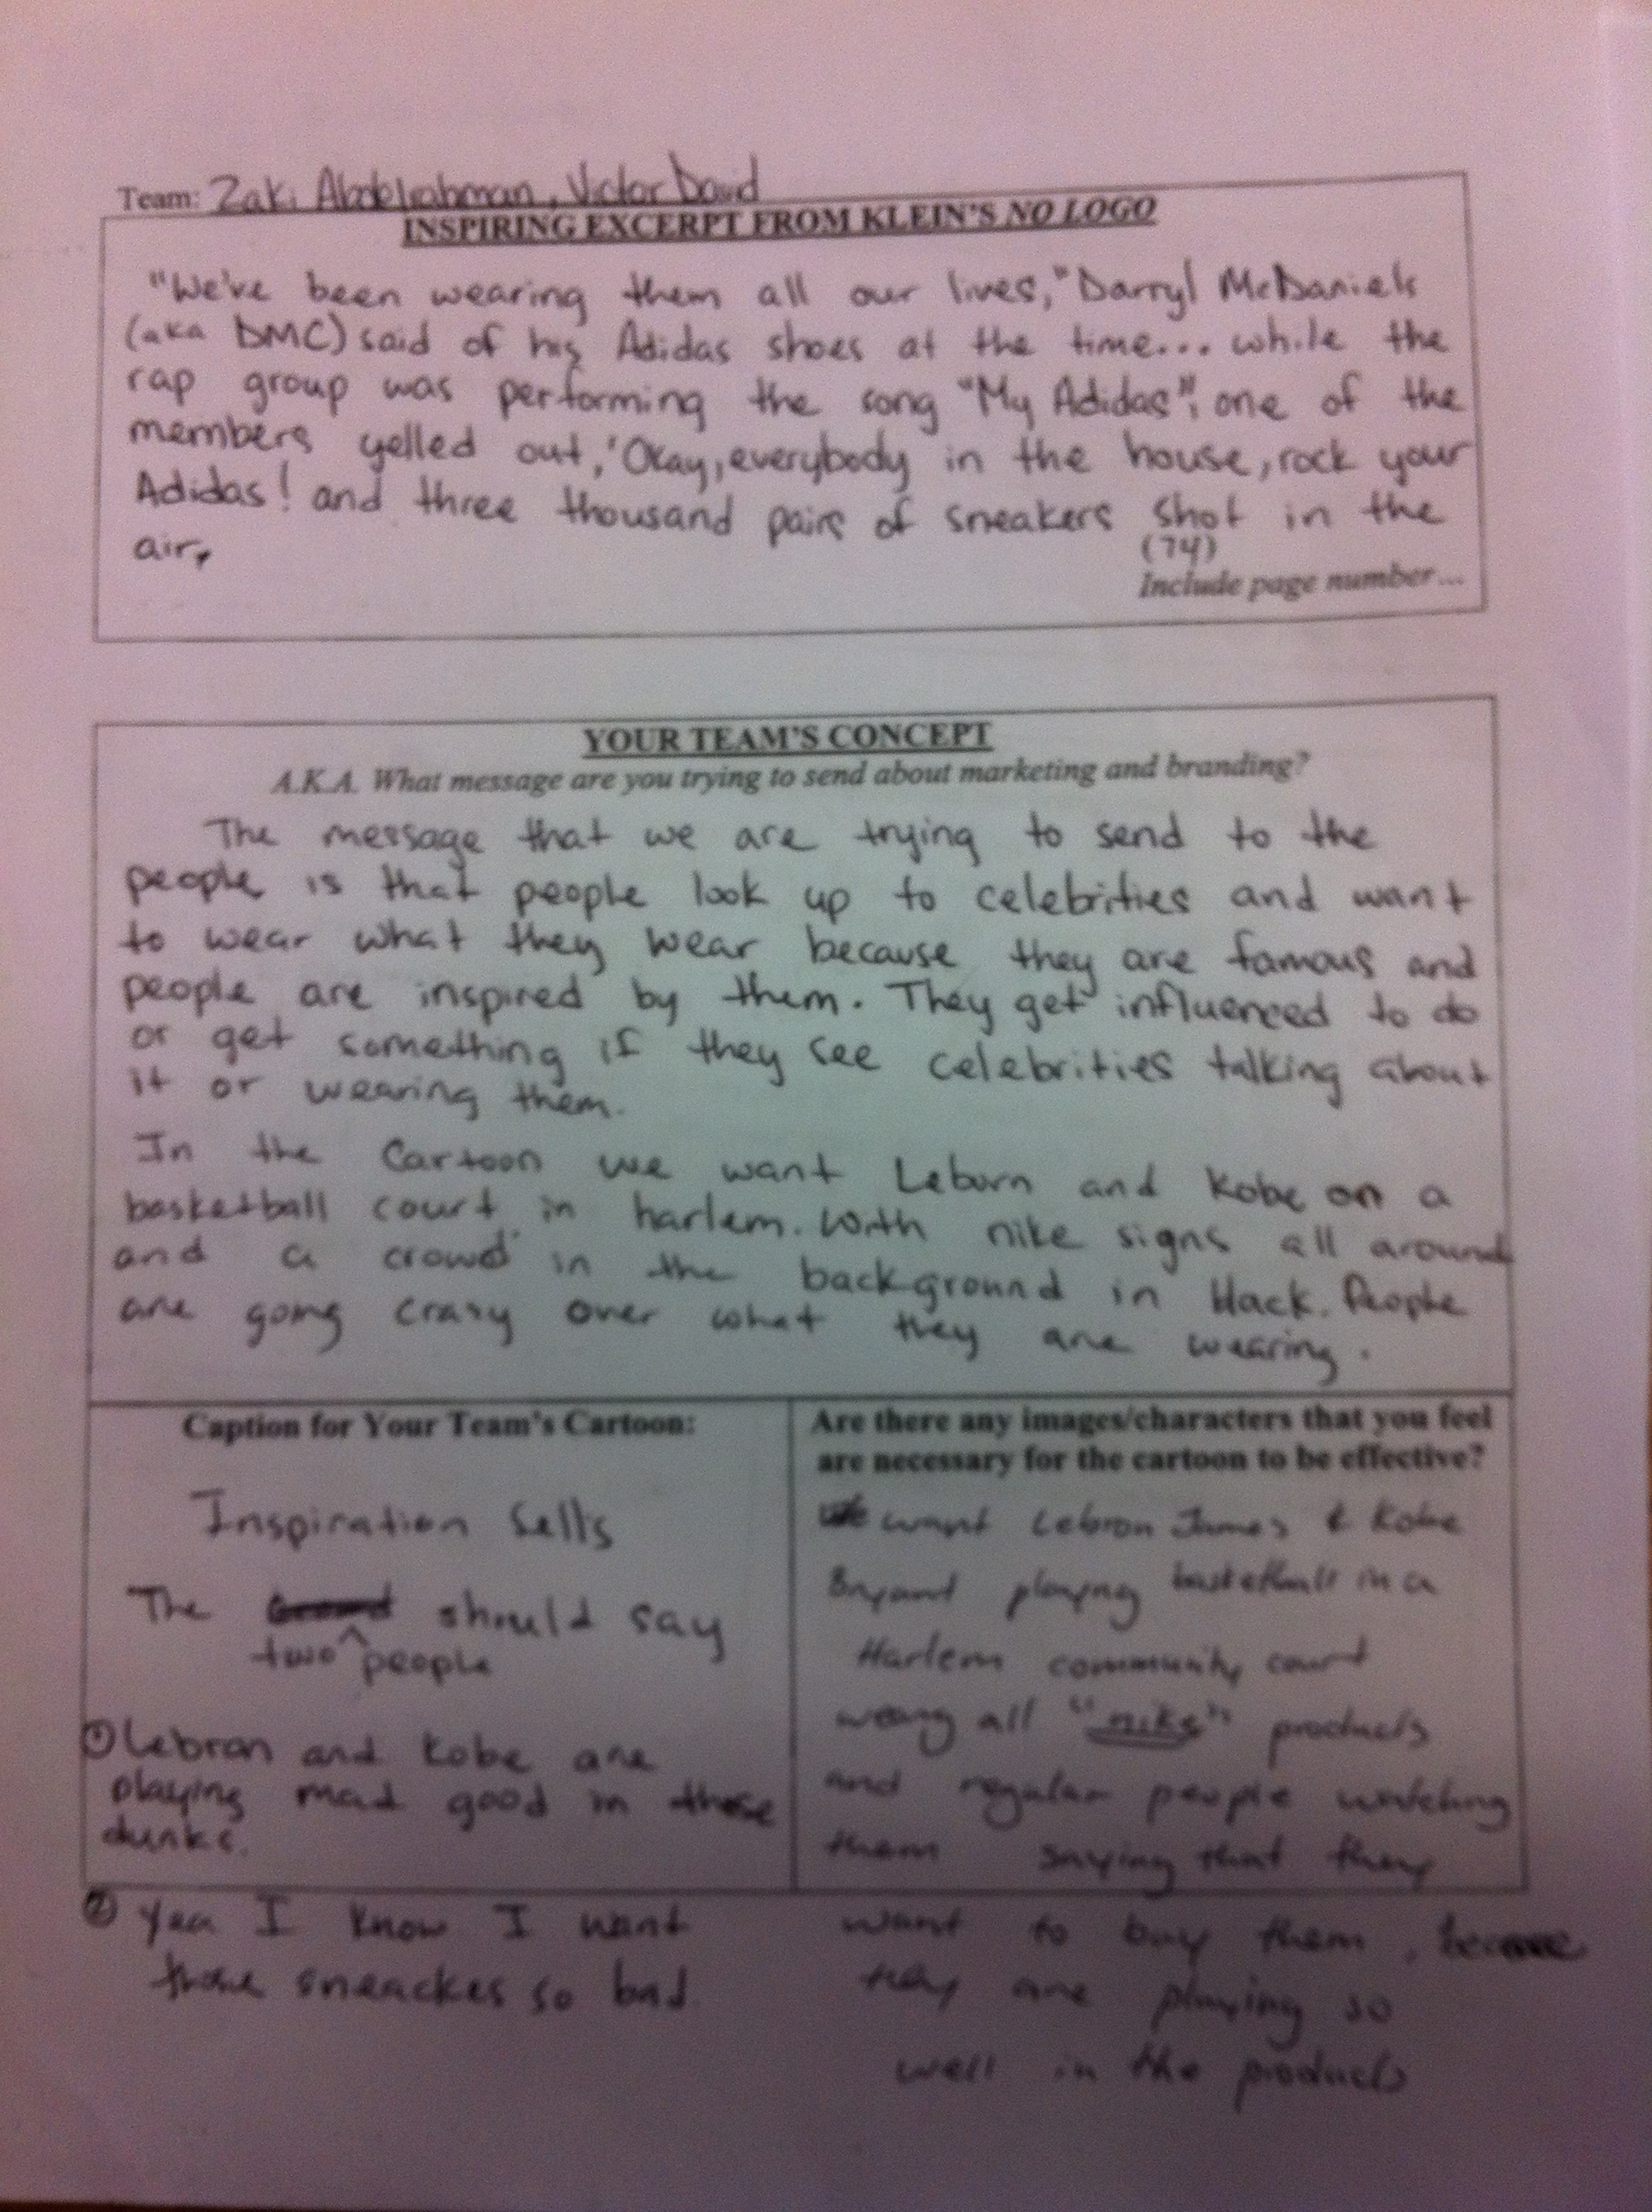 Team: Zaki Abdelrahman, Victor David
INSPIRING EXCERPT FROM KLEIN'S NO LOGO
"We've been wearing them all our lives," Darryl McDaniels
(aka DMC) said of his Adidas shoes at the time... while the
rap group was performing the song "My Adidas", one of the
members yelled out, 'Okay, everybody in the house, rock your
Adidas! and three thousand pairs of sneakers shot in the
air.
(74)
Include page number...
YOUR TEAM'S CONCEPT
A.K.A. What message are you trying to send about marketing and branding?
The message that we are trying to send to the
people is that people look up to celebrities and want
to wear what they wear because they are famous and
people are inspired by them. They get influenced to do
or get something if they see celebrities talking about
it or wearing them.
In the Cartoon we want Leburn and Kobe on a
basketball court in harlem. With nike signs all around
and a crowd in the background in black. People
are going crazy over what they are wearing.
Caption for Your Team's Cartoon:
Inspiration Sells
The should say
two people
① Lebron and Kobe are
playing mad good in those
dunks.
② Yea I know I want
those sneackes so bad.
Are there any images/characters that you feel
are necessary for the cartoon to be effective?
We want Lebron James & Kobe
Bryant playing basketball in a
Harlem community court
wearing all "nike" products
and regular people watching
them saying that they
want to buy them, because
they are playing so
well in the products